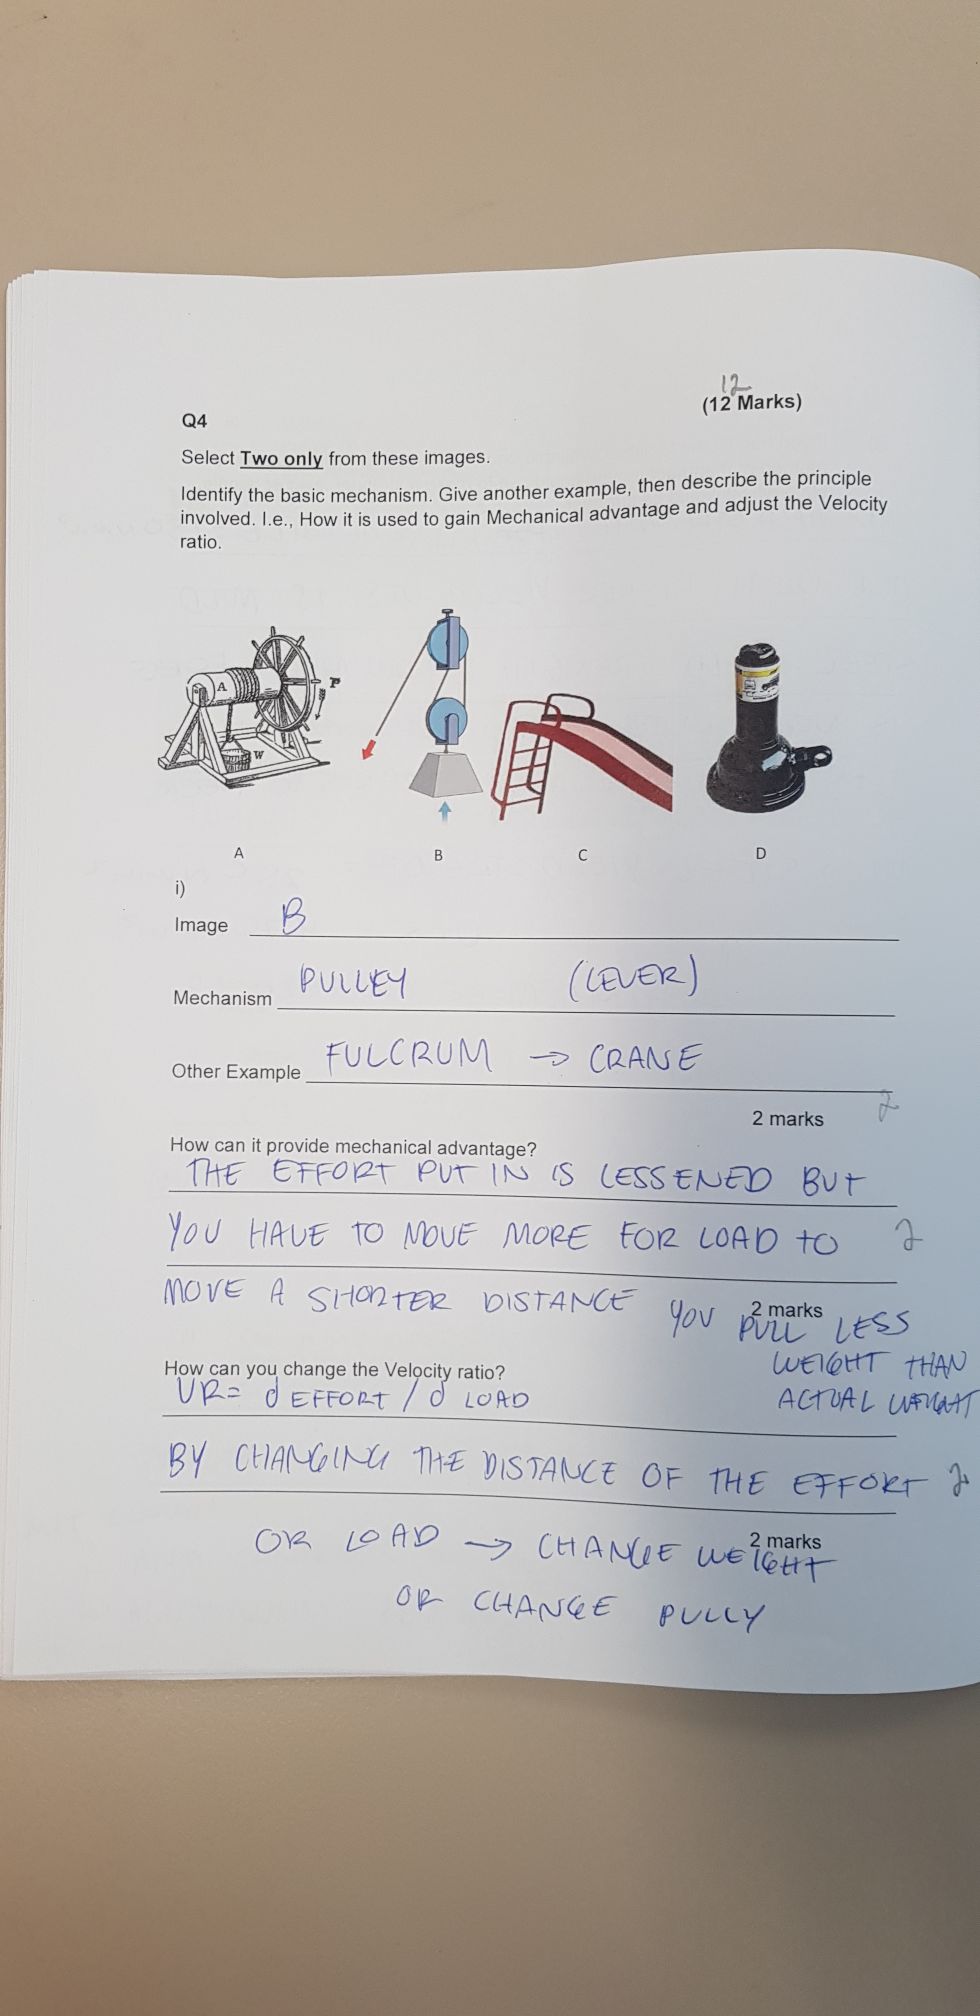 12
(12 Marks)
Q4
Select Two only from these images.
Identify the basic mechanism. Give another example, then describe the principle
involved. I.e., How it is used to gain Mechanical advantage and adjust the Velocity
ratio.
A
P
W
A B C D
i)
Image B
Mechanism PULLEY (LEVER)
Other Example FULCRUM → CRANE
2 marks 2
How can it provide mechanical advantage?
THE EFFORT PUT IN IS LESSENED BUT
YOU HAVE TO MOVE MORE FOR LOAD TO 2
MOVE A SHORTER DISTANCE YOU PULL LESS
2 marks
WEIGHT THAN
ACTUAL WEIGHT
How can you change the Velocity ratio?
VR= d EFFORT / d LOAD
BY CHANGING THE DISTANCE OF THE EFFORT 2
2 marks
OR LOAD → CHANGE WEIGHT
OR CHANGE PULLY